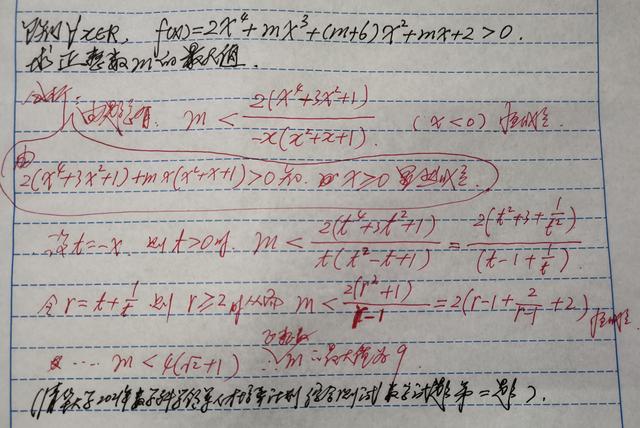 已知∀x∈R, f(x)=2x⁴+mx³+(m+6)x²+mx+2>0.
求正整数m的最大值.
分析: 由题意知 m < 2(x⁴+3x²+1)/(-x(x²+x+1)). (x<0) 恒成立.
由 2(x⁴+3x²+1)+mx(x²+x+1)>0知. 当x≥0 显然成立.
设t=-x. 则t>0时. m < 2(t⁴+3t²+1)/(t(t²-t+1)) = 2(t²+3+1/t²)/(t-1+1/t).
令r=t+1/t 则r≥2时从而 m < 2(r²+1)/(r-1) = 2(r-1+2/(r-1)+2) 恒成立
⋯⋯ m<4(√2+1) ∴正整数m的最大值为9.
(清华大学2021年数学科学领军人才培养计划综合测试数学试题第二题).